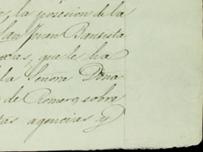 la posesion de la
San Juan Bautista
que le ha
la Señora Dona
de Romero, sobre
agencias y